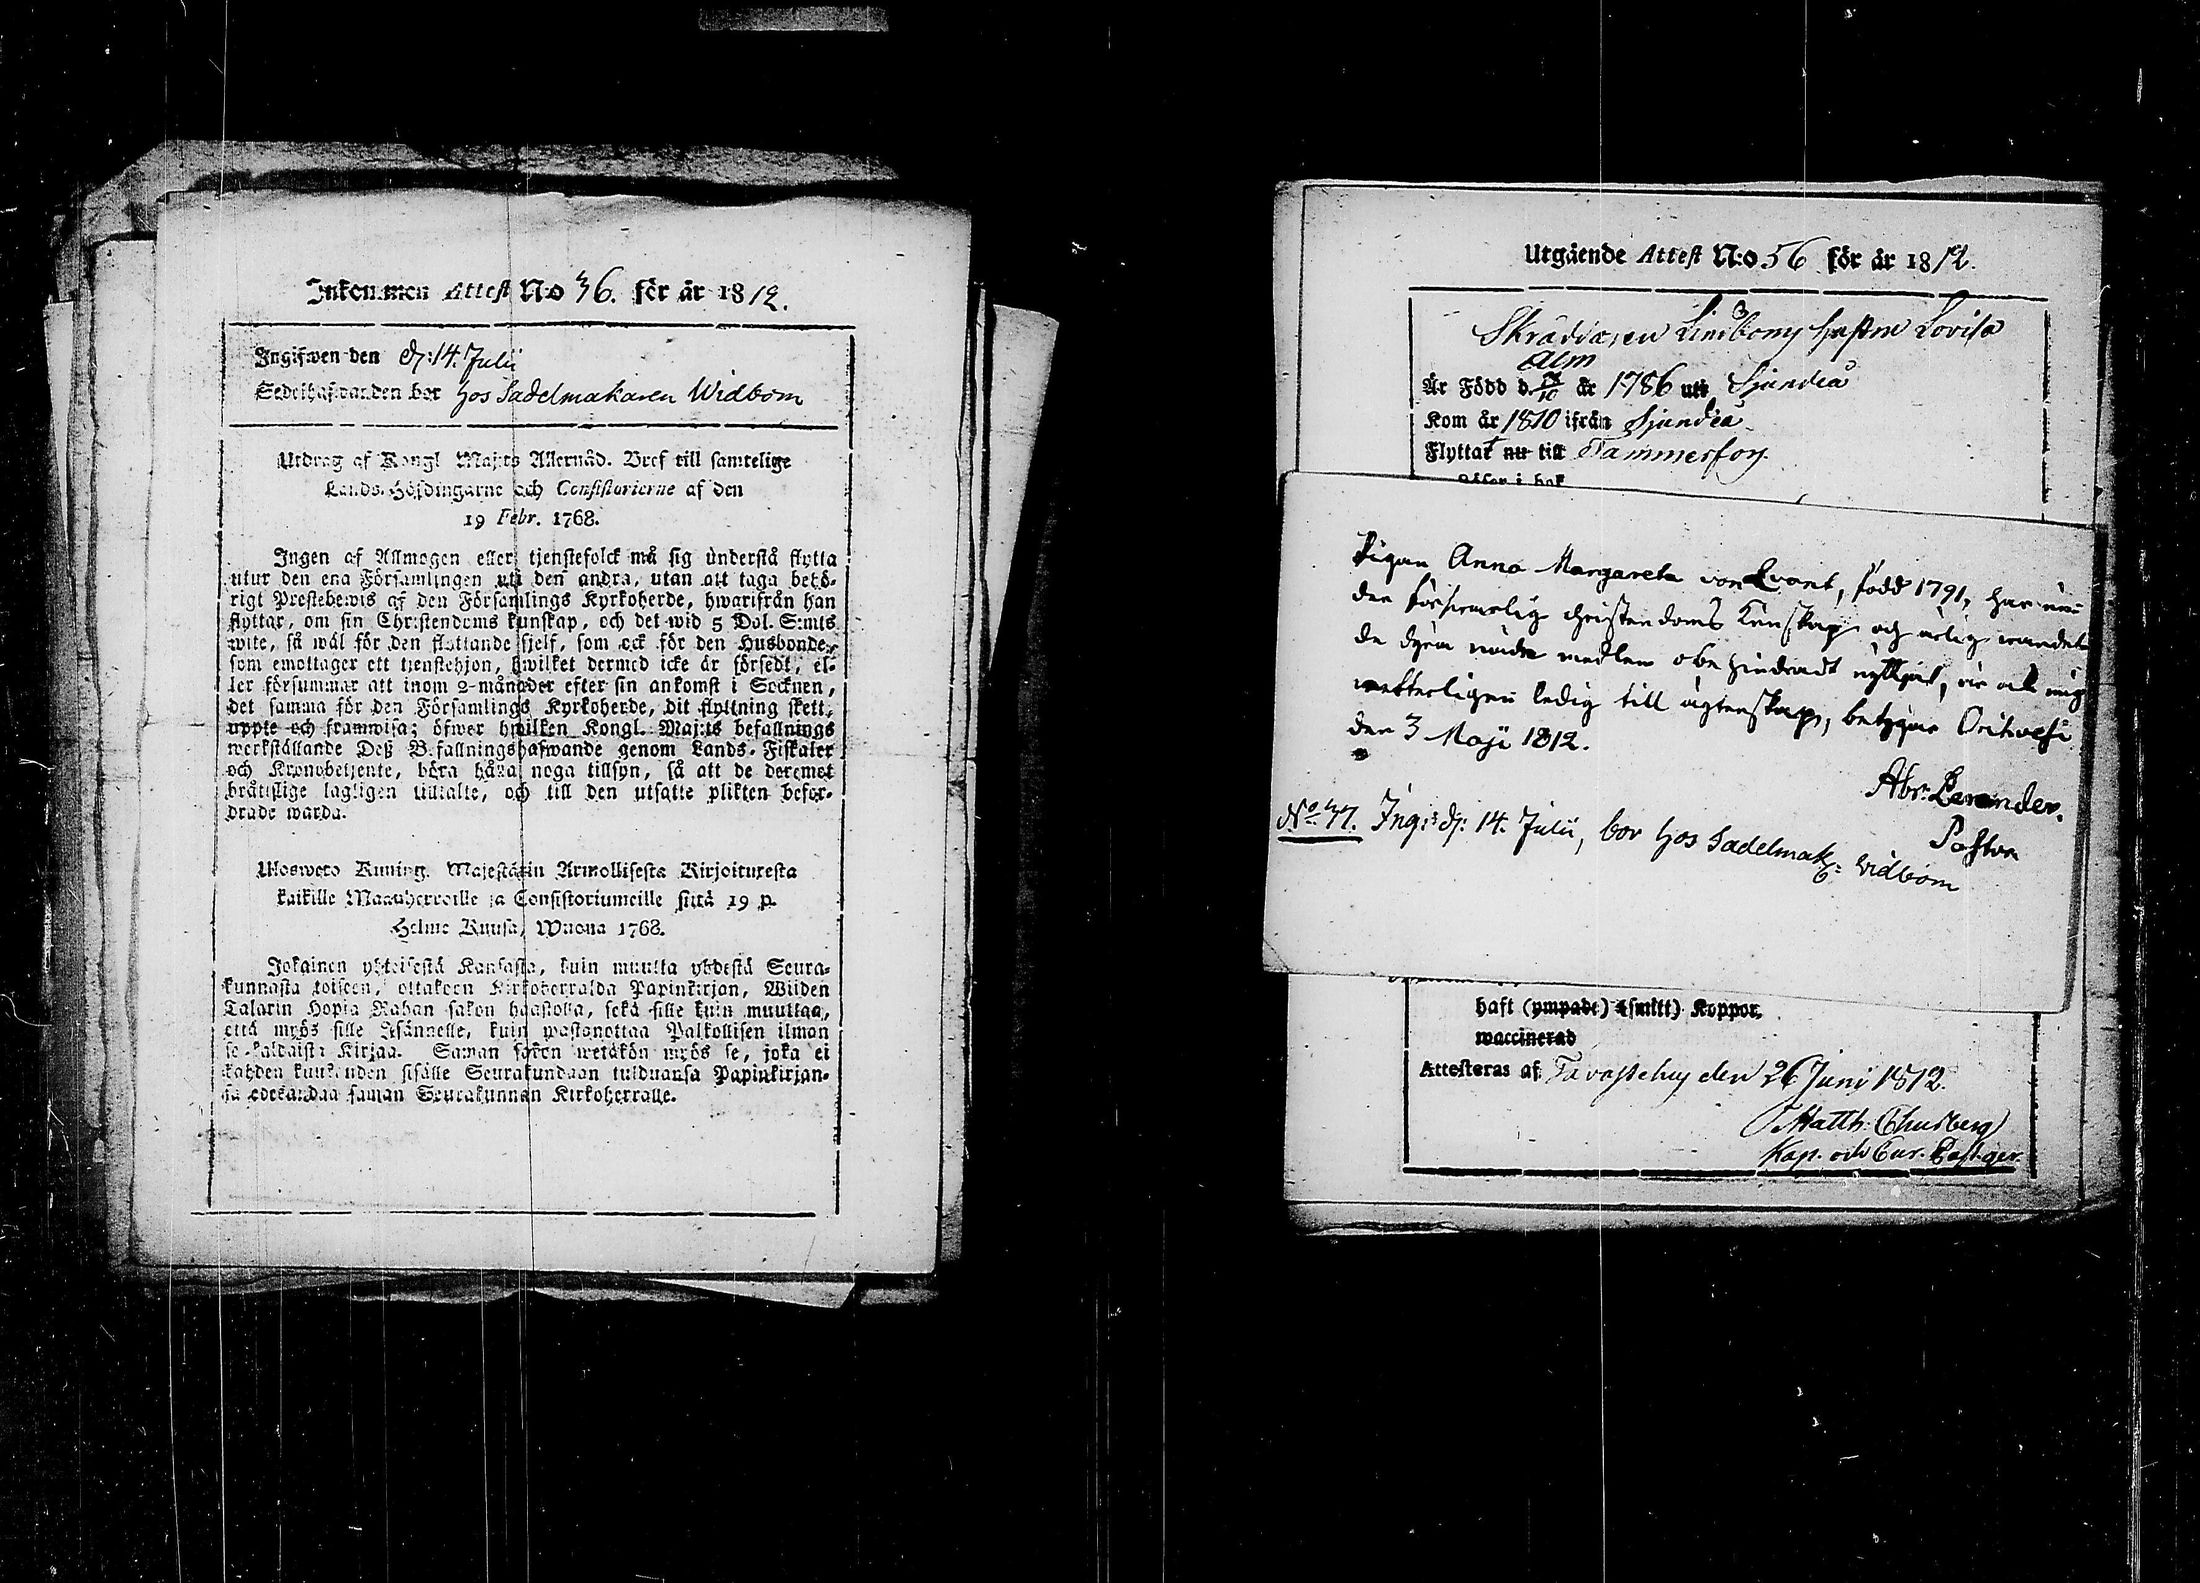 Inkommen Attest No 36. för år 1812.
Ingifwen den d: 14. Julii
Sedelhafwanden bor hos Sadelmakaren Widbom
Utdrag af Kongl Maj:ts Allernåd. Bref till samtelige
Lands-Höfdingarne och Consistorierne af den
19 Febr. 1768.
Ingen af Allmogen eller tjenstefolck må sig understå flytta
utur den ena Församlingen uti den andra, utan att taga behö-
rigt Prestebewis af den Församlings Kyrkoherde, hwarifrån han
flyttar, om sin Christendoms kunskap, och det wid 5 Dol. S:mts
wite, så wäl för den flyttande sjelf, som ock för den Husbonde,
som emottager ett tjenstehjon, hwilket dermed icke är försedt, el-
ler försummar att inom 2-månader efter sin ankomst i Socknen,
det samma för den Församlings Kyrkoherde, dit flyttning skett,
uppte och framwisa; öfwer hwilken Kongl. Maj:ts befallnings
werkställande Deß Befallningshafwande genom Lands-Fiskaler
och Kronobetjente, böra hålla noga tillsyn, så att de deremot
bråttslige lagligen tilltalte, och till den utsatte plikten befor-
drade warda.
Ulosweto Kuning. Majestätin Armollisesta Kirjoituxesta
kaikille Maanherroille ja Consistoriumeille siitä 19 p.
Helme Kuusa, Wuona 1768.
Jokainen yhteisestä Kansasta, kuin muutta yhdestä Seura-
kunnasta toiseen, ottakoon Kirkoherralda Papinkirjan, Wiiden
Talarin Hopia Rahan sakon haastolla, sekä sille kuin muuttaa,
että myös sille Isännelle, kuin wastanottaa Palkollisen ilman
se-kaldaista Kirjaa. Saman sakon wetäkön myös se, joka ei
kahden kuukauden sisälle Seurakundaan tulduansa Papinkirjan-
sa edeskandaa saman Seurakunnan Kirkoherralle.
Utgående Attest N:o 56 för år 1812.
Skräddaren Lindboms hustru Lovisa
Alm
Är Född d. år 1786 uti Sjundeå
Kom år 1810 ifrån Sjundeå
Flyttat nu till Tammerfors.
Läser i bok
Pigan Anna Margareta von Qvant, född 1791, har
den försvarlig christendoms Kunskap och ärlig wandel
de dyra nåde medlen obehindradt nyttjat, är ock mig
wetterligen ledig till ägtenskap, betygar Orihvesi
den 3 Maji 1812.
Abr: Levander.
Pastor
No 37. Ing: d: 14. Julii, bor hos Sadelmak: Widbom
haft (ympade) (smitt) Koppor,
waccinerad
Attesteras af Tavastehus den 26 Junii 1812.
Matth: Thusberg
Kap. och Cur. Past:ger.